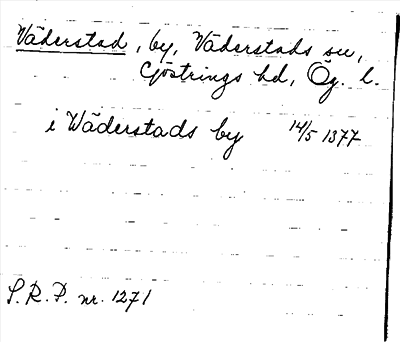 Väderstad, by, Väderstads sn,
Göstrings hd, Ög. l.
i Wäderstads by 14/5 1377
S.R.P. nr. 1271